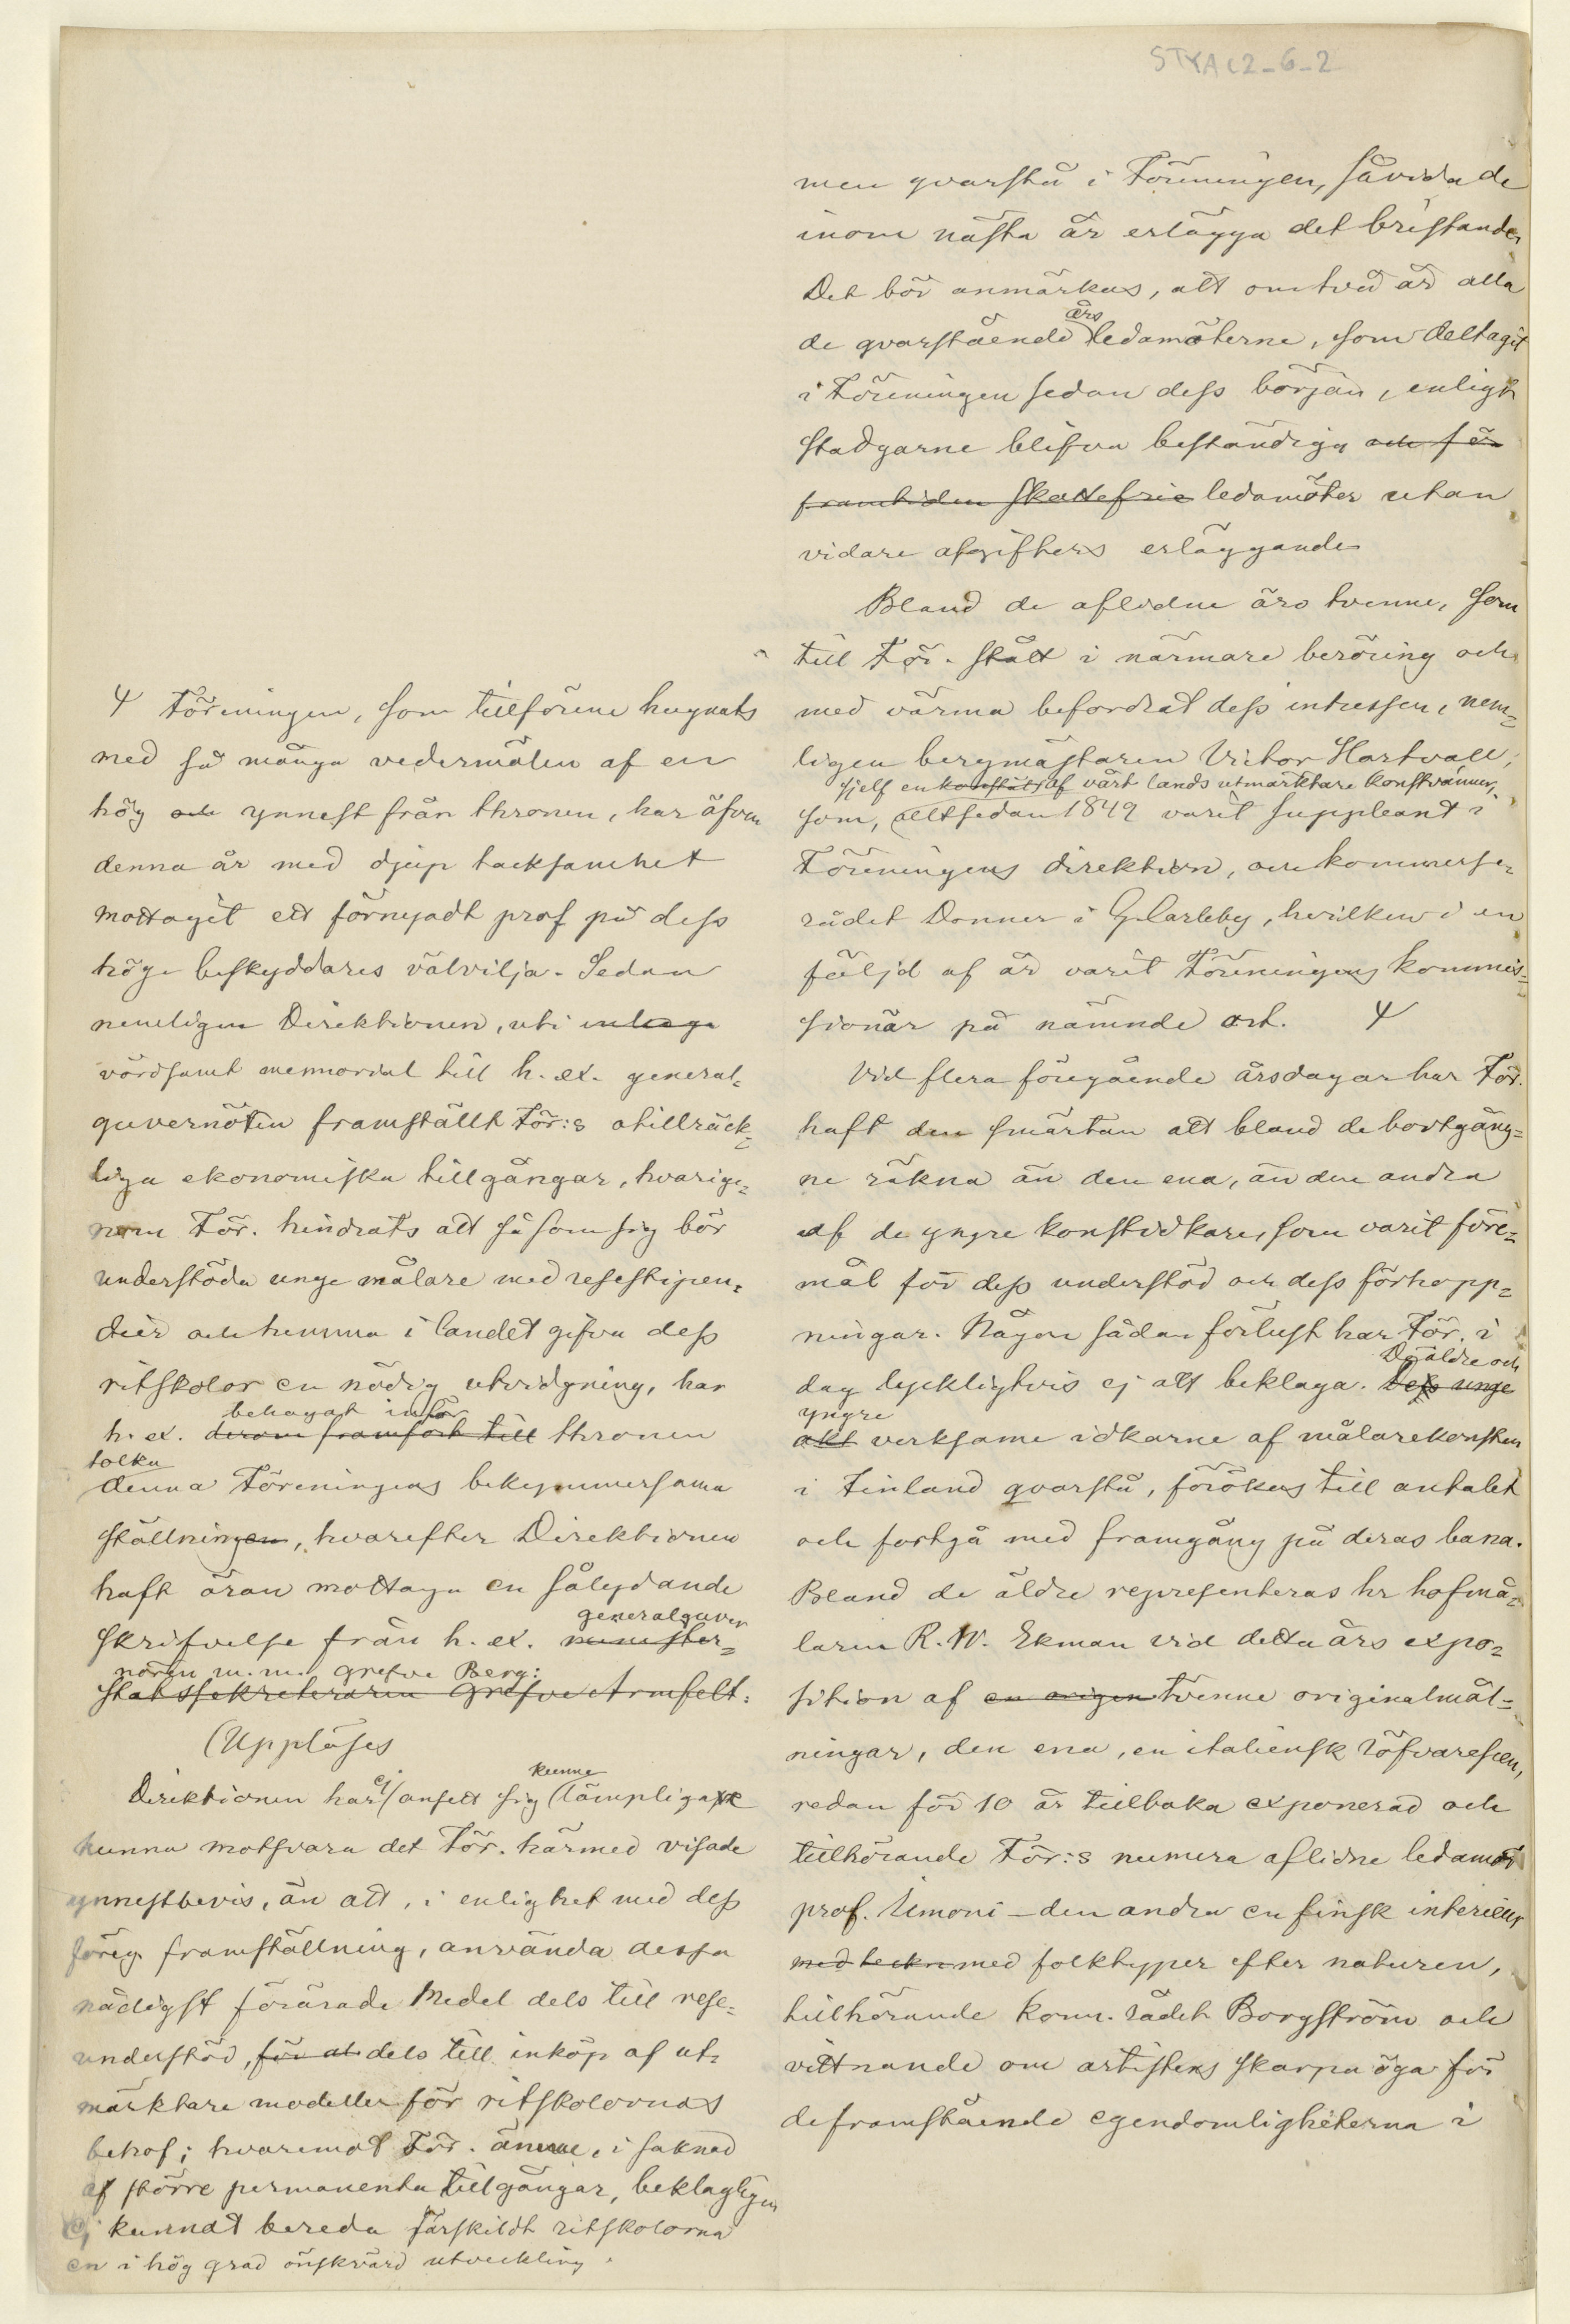 STYA C2-6-2
men qvarstå i Föreningen, såvida de
inom nästa år erlägga det bristande.
Det bör anmärkas, att om två år alla
års
de qvarstående ledamöterne, som deltagit
i Föreningen sedan dess början, enligt
stadgarne blifva beständiga och för
framtiden skattefrie ledamöter utan
vidare afgifters erläggande
Bland de aflidne äro tvenne, som
till För. stått i närmare beröring och
med värma befordrat dess intressen, nem-
ligen bergmästaren Victor Hartvall,
sjelf en af vårt lands utmärktare konstvänner,
som, alltsedan 1849 varit suppleant i
Föreningens direktion, och kommerse-
rådet Donner i G.Carleby, hvilken i en
följd af år varit Föreningens kommis-
sionär på nämnde ort. Ψ
Vid flera föregående årsdagar har För.
haft den smärtan att bland de bortgång-
ne räkna än den ena, än den andra
af de yngre konstidkare, som varit före-
mål för dess understöd och dess förhopp-
ningar. Någon sådan förlust har För. i
De äldre och
dag lyckligtvis ej att beklaga. Dess unge
yngre
akt verksame idkarne af målarekonsten
i Finland qvarstå, förökas till antalet
och fortgå med framgång på deras bana.
Bland de äldre representeras hr hofmå-
laren R. W. Ekman vid detta års expo-
sition af en origen tvenne originalmål-
ningar, den ena, en italiensk röfvarescen,
redan för 10 år tillbaka exponerad och
tillhörande För:s numera aflidne ledamot
prof. Ilmoni – den andra en finsk interieur
med teckn med folktyper efter naturen,
tillhörande kom. rådet Borgström och
vittnande om artistens skarpa öga för
de framstående egendomligheterna i
Ψ Föreningen, som tillförene hugnats
med så många vedermälen af en
hög och ynnest från thronen, har äfven
denna år med djup tacksamhet
mottagit ett förnyadt prof på dess
höge beskyddares välvilja. Sedan
nemligen Direktionen, uti
vördsamt memorial till h. ex. general-
guvernören framställt För:s otillräck-
liga ekonomiska tillgångar, hvarige-
nom För. hindrats att såsom sig bör
understöda unge målare med resestipen-
dier och hemma i landet gifva dess
ritskolor en nödig utvidgning, har
behagat inför
h. ex. derom framfört till thronen
tolka
denna Föreningens bekymmersama
ställningen, hvarefter Direktionen
haft äran mottaga en sålydande
generalguver
skrifvelse från h. ex. minister-
nören m. m. Grefve Berg:
statssekreteraren Grefve Armfelt:
(Uppläses
kunna
Direktionen har ej ansett sig lämpligare
kunna motsvara det För. härmed visade
ynnestbevis, än att, i enlighet med dess
föreg. framställning, använda dessa
nådigst förärade medel dels till rese-
understöd, för at dels till inköp af ut-
märktare modeller för ritskolornas
behof; hvaremot För. ännu, i saknad
af större permanenta tillgångar, beklagligen
ej kunnat bereda särskildt ritskolorna
en i hög grad önskvärd utveckling.